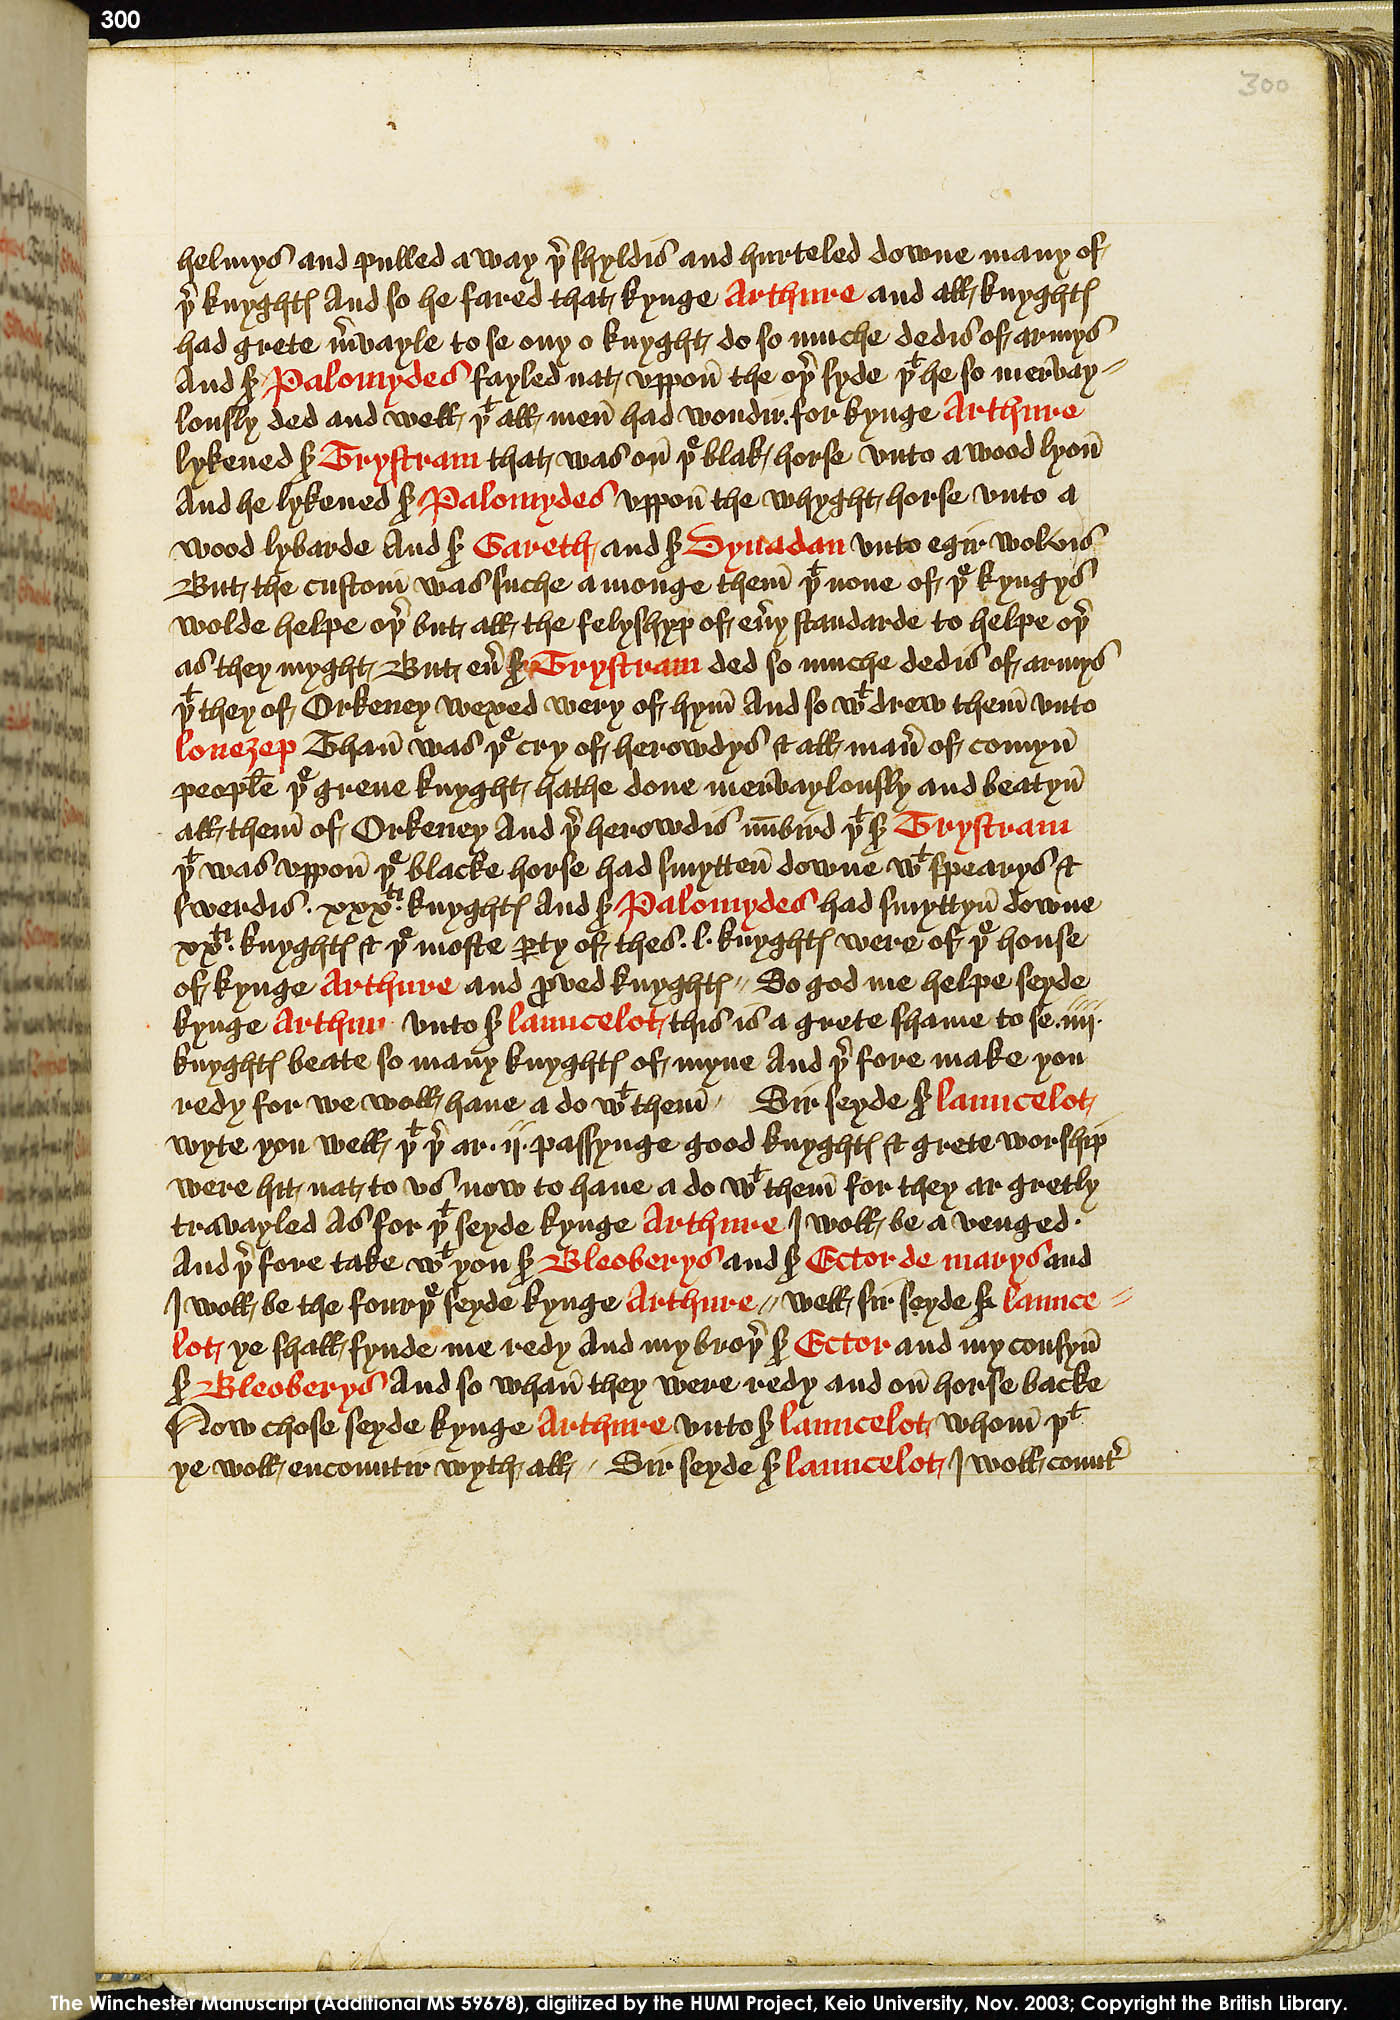 300
300
helmys and pulled a way þr shyldis and hurteled downe many of
þr knyghtes And so he fared that kynge Arthure and all knyghtes
had grete mrvayle to se ony o knyght do so muche dedis of armys
And sr Palomydes fayled nat vppon the oþr syde þt he so mervay-
lously ded and well þt all men had wondir. for kynge Arthure
lykened sr Trystram that was on þe blak horse vnto a wood lyon
And he lykened sr Palomydes vppon the whyght horse vnto a
wood lybarde And sr Gareth and sr Dynadan vnto egir wolvis
But the custom was suche a monge them þt none of þe kyngys
wolde helpe oþr but all the felyshyp of eury standarde to helpe oþr
as they myght But eur sr Trystram ded so muche dedis of armys
þt they of Orkeney wexed wery of hym And so wt drew them vnto
lonezep Than was þe cry of herowdys & all manr of comyn
people þe grene knyght hathe done mervaylously and beatyn
all them of Orkeney And þr herowdis numbird þt sr Trystram
þt was vppon þe blacke horse had smytten downe wt spearys &
swerdis . xxxti. knyghtes And sr Palomydes had smyttyn downe
xxti. knyghtes & þe moste party of thes . l. knyghtes were of þe house
of kynge Arthure and proved knyghtes // So god me helpe seyde
kynge Arthur vnto sr launcelot this is a grete shame to se .iiij.
knyghtes beate so many knyghtes of myne And þr fore make you
redy for we woll haue a do wt them // Sir seyde sr launcelot
wyte you well þt þr ar . ij. passynge good knyghtes & grete worship
were hit nat to vs now to haue a do wt them for they ar gretly
travayled As for þt seyde kynge Arthure I woll be a venged.
And þr fore take wt you sr Bleoberys and sr Ector de marys and
I woll be the fourþe seyde kynge Arthure // well sir seyde sr launce=
lot ye shall fynde me redy And my broþr sr Ector and my cousyn
sr Bleoberys And so whan they were redy and on horse backe
Now chose seyde kynge Arthure vnto sr launcelot whom þt
ye woll encountir wyth all // Sir seyde sr launcelot I woll countr
The Winchester Manuscript (Additional MS 59678), digitized by the HUMI Project, Keio University, Nov. 2003; Copyright the British Library.